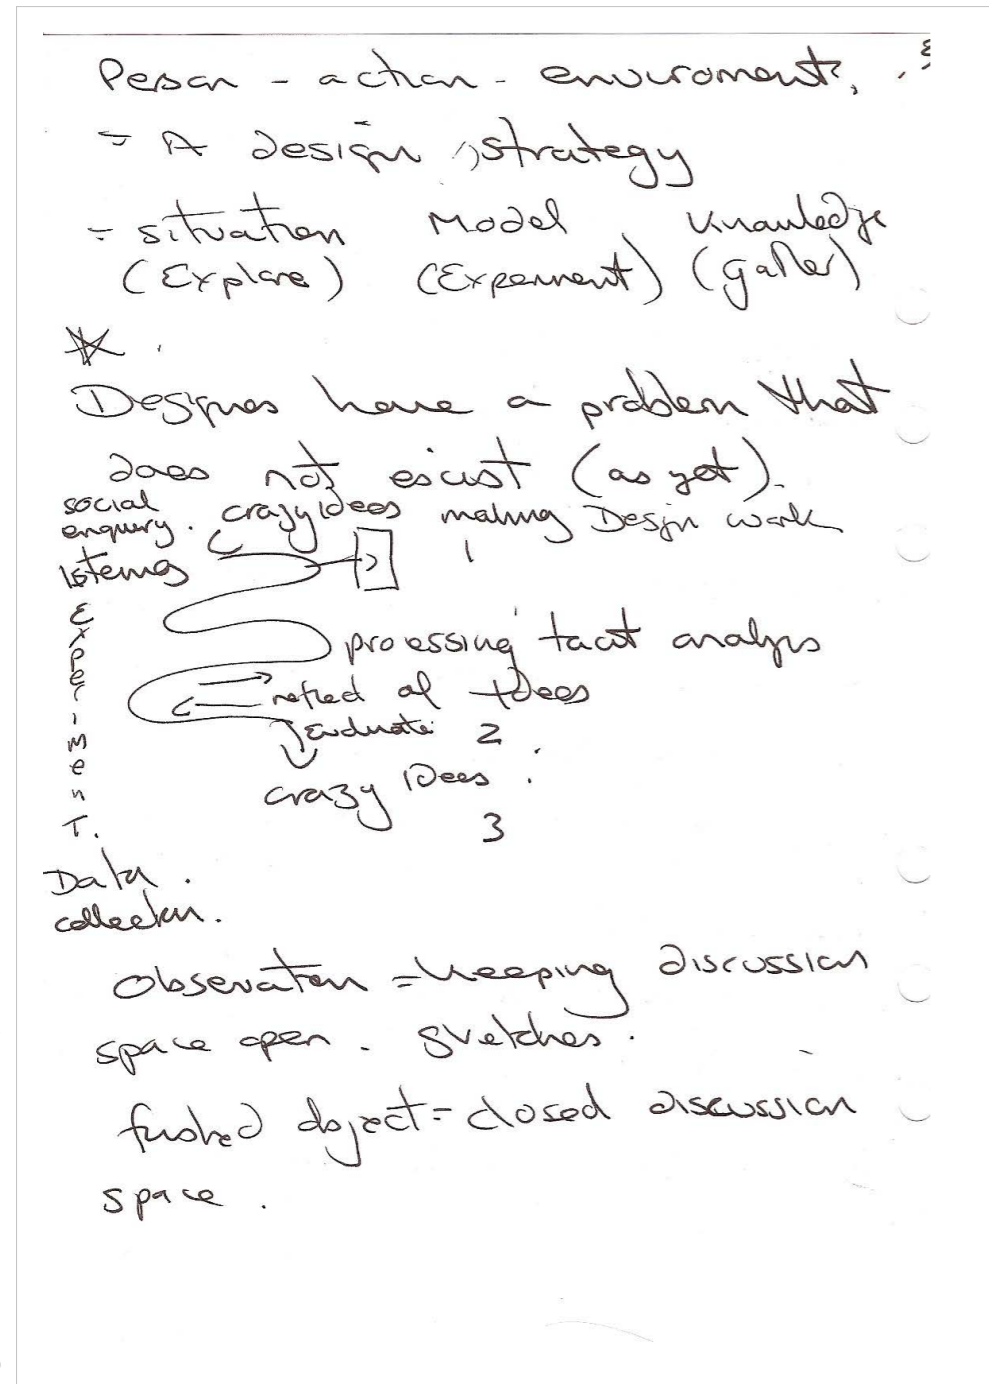 Person - action - enviroment,
= A design strategy
= situation Model Knowledge
(Explore) (Experiment) (gather)
Designers have a problem that
does not exist (as yet).
social
enquiry. crazy idees making Design work
listening 1
Experiment.
processing tacit analysis
reflect of Idees
Evaluate 2
crazy idees
3
Data.
collection.
Observation = keeping discussion
space open. sketches.
finished object = closed discussion
space.